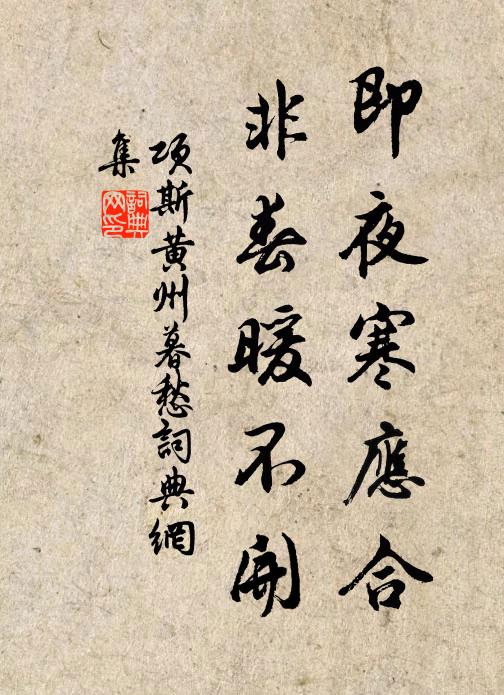 即夜寒應合
非春暖不開
項斯黃州暮愁詞典網
集
詞典
网印